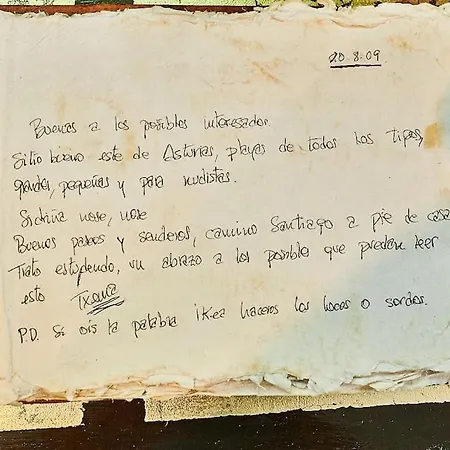 20.8.09
Buenas a los posibles interesados.
Sitio bueno este de Asturias, playas de todos los tipos,
grandes, peqeñas y para nudistas.
Sidriña nose, nose
Buenos paseos y senderos, camino Santiago a pie de casa
Trato estupendo, un abrazo a los posibles que puedan leer
esto Txema
P.D. Si oís la palabra ikea haceros los locos o sordos.